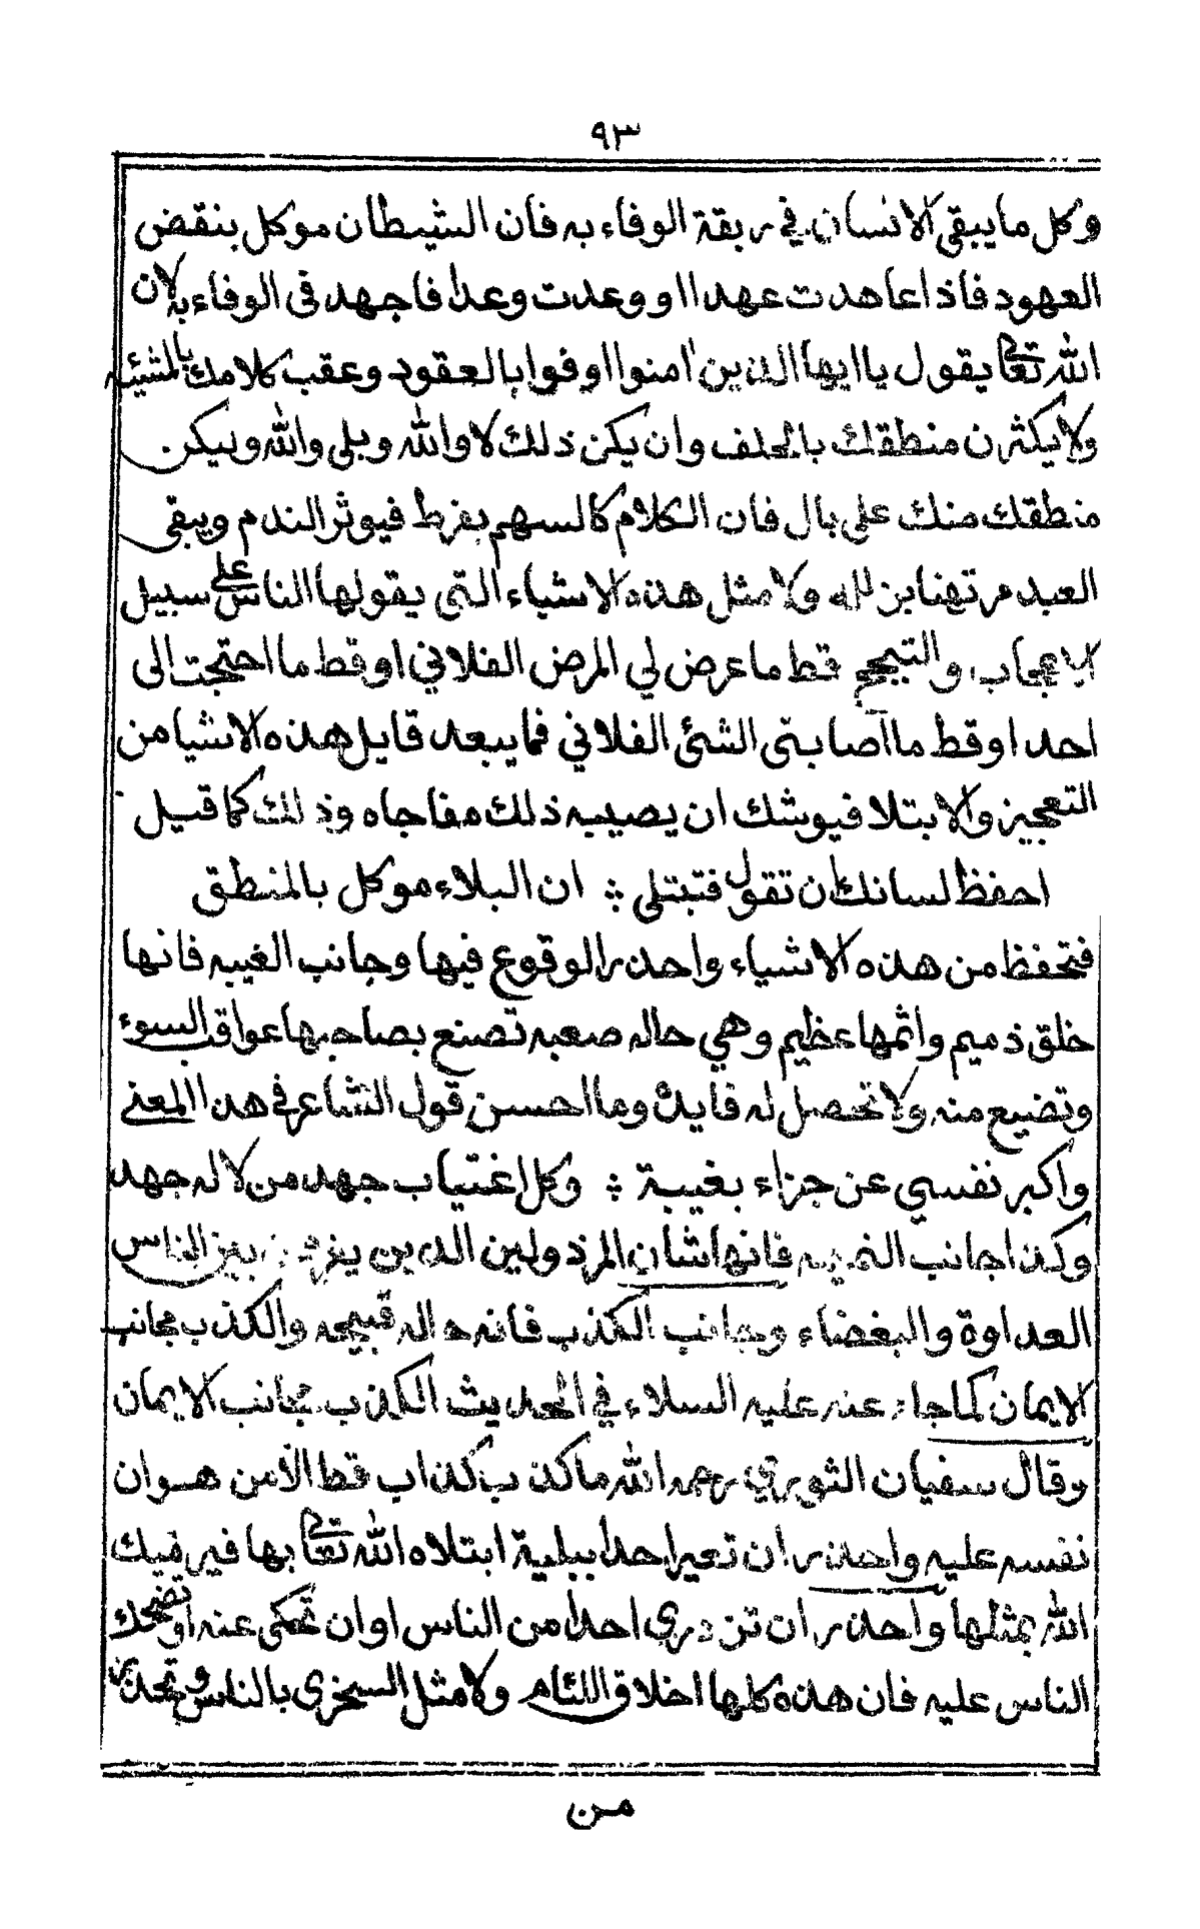 ٩٣
وكل ما يبقى الانسان في ربقة الوفاء به فان الشيطان موكل بنقض
العهود فاذا عاهدت عهدا او وعدت وعدا فاجهد في الوفاء به لان
الله تعالى يقول يا ايها الذين امنوا اوفوا بالعقود وعقب كلامك بالمشئيه
ولا يكثرن منطقك بالحلف وان يكن ذلك لا والله وبلى والله وليكن
منطقك منك على بال فان الكلام كالسهم يفرط فيوثر الندم ويبقى
العبد مرتهنا بزلله ولا مثل هذه الاشياء التي يقولها الناس على سبيل
الاعجاب والتبجح قط ما عرض لي المرض الفلاني او قط ما احتجت الى
احد او قط ما اصابتني الشئ الفلاني فما يبعد قايل هذه الاشيا من
التعجيز والابتلا فيوشك ان يصيبه ذلك مفاجاه وذلك كما قيل
احفظ لسانك ان تقول فتبتلى ؛ ان البلاء موكل بالمنطق
فتحفظ من هذه الاشياء واحذر الوقوع فيها وجانب الغيبه فانها
خلق ذميم واثمها عظيم وهي حاله صعبه تصنع بصاحبها عواقب السوء
وتضيع منه ولا تحصل له فايدة وما احسن قول الشاعر في هذا المعنى
واكبر نفسي عن جزاء بغيبة ؛ وكل اغتياب جهد من لا له جهد
وكذا جانب النميمه فانها شان المرذولين الذين بين الناس
العداوة والبغضاء وجانب الكذب فانه حاله قبيحه والكذب مجانب
الايمان كما جاء عنه عليه السلاء في الحديث الكذب مجانب الايمان
وقال سفيان الثوري رحمه الله ما كذب كذاب قط الا من هوان
نفسه عليه واحذر ان تعير احدا ببلية ابتلاه الله تعالى بها فير فيك
الله بمثلها واحذر ان تزدري احدا من الناس او ان تحكي عنه او تضحك
الناس عليه فان هذه كلها اخلاق اللئام ولا مثل السخري بالناس و
من